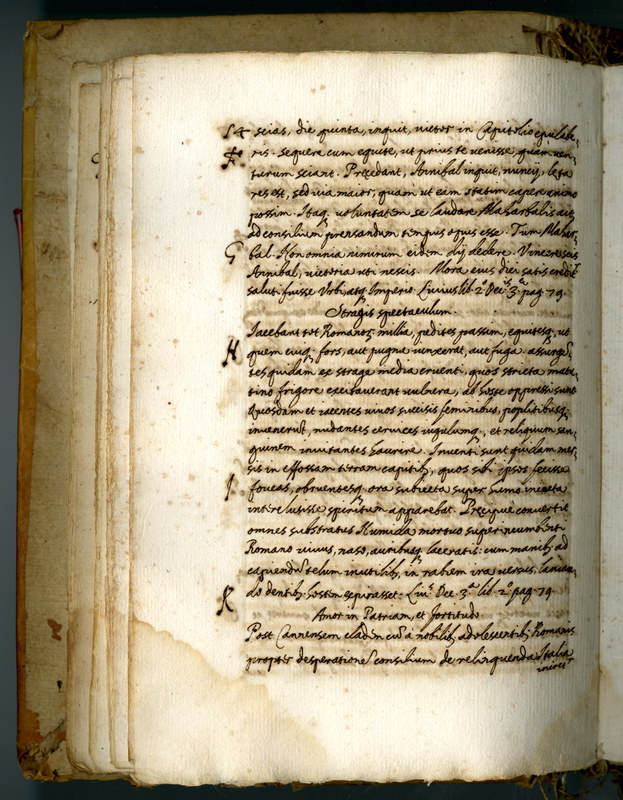 54 scias, die quinta, inquit, uictor in Capitolio epulabe,
F ris. sequere cum equite, ut prius te uenisse, quàm uen,
turum sciant. Precedant, Annibal inquit, nuncij, leta
res est, sed uia maior, quam ut eam statim capere animo
possim. Itaq. uoluntatem se laudare Maharbalis ait,
ad consilium pensandum tempus opus esse. Tum Mahar,
G bal. Non omnia nimirum eidem dij dedere. Vincere scis
Annibal, uictoria uti nescis. Mora eius diei satis credit.
saluti fuisse Vrbi, atq. Imperio. Liuius lib. 2.º Dec.is 3.ae pag. 79.
Stragis spectaculum.
H Iacebant tot Romanor. millia, pedites passim, equitesq., ut
quem cuiq. fors, aut pugna iunxerat, aut fuga. assurgē,
tes quidam ex straga media cruent, quos stricta matu
tino frigore excitauerant uulnera, ab hoste oppressi sunt
Quosdam et iacentes uiuos succisis feminibus, poplitibusq.
inuenerūt, nudantes ceruices iugulumq., et reliquum san,
guinem inuitantes haurire. Inuenti sunt quidam mer,
sis in effossam terram capitib., quos sibi ipsos fecisse
I foueas, obruentesq. ora subiecta super humo iniecta
interclusisse spiritum apparebat. Precipue conuertit
omnes substratus Numida mortuo superincumbenti
Romano uiuus, naso, auribusq. laceratis: cum manib. ad
capiendū telum inutilib., in rabiem ira uersus, lanian,
K do dentib. hostem expirasset. Liu.s Dec. 3.ae lib. 2.º pag. 79.
Amor in Patriam, et fortitudo
Post Cannensem cladem cū a nobilib. adolescentib. Romanis
propter desperationē consilium de relinquenda Italia
iniret.r